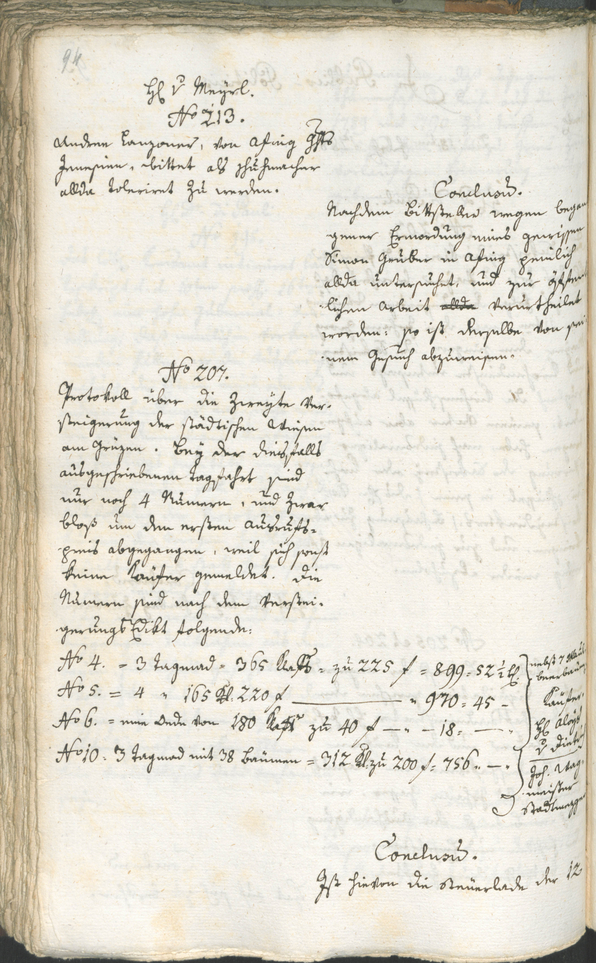 94
H. v. Meyrl.
No 213.
Andree Lanzoner, von Afing Ghts
Jenesien, bittet als Schuhmacher
allda tolerirt zu werden.
Conclusū.
Nachdem Bittsteller wegen began
gener Ermordung eines gewissen
Simon Gruber in Afing peinlich
allda untersuchet, und zur öffent
lichen Arbeit allda verurtheilet
worden: so ist derselbe von sei
nem Gesuch abzuweisen.
No 207.
Protokoll über die Zweyte Ver-
steigerung der städtischen Wiesen
am Grüzen. Bey der diesfalls
ausgeschriebenen Tagfahrt sind
nur noch 4 Numern, und zwar
bloß um den ersten Ausrufs-
preis abgegangen, weil sich sonst
keine Käufer gemeldet. Die
Numern sind nach dem Verstei-
gerungs Edikt folgende:
No 4. = 3 Tagmad = 365 Klafft. zu 225 f = 899 = 52½
No 5. = 4 " 165 Kl. 220 f " 970 = 45 -
No 6. = eine Oede von 180 Klafft zu 40 f - " - 18 = -
No 10. 3 Tagmad mit 38 Bäumen = 312 Kl zu 200 f = 756 " -
nebst 7
Käufer
H. Aloys
v.
Joh.
meister
Conclusū.
Ist hievon die Steuerlade der 12